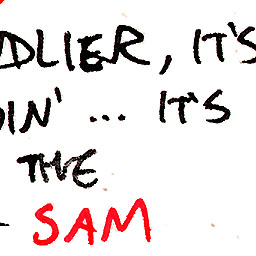 DLIER, IT'S
IN' ... IT'S
THE
- SAM